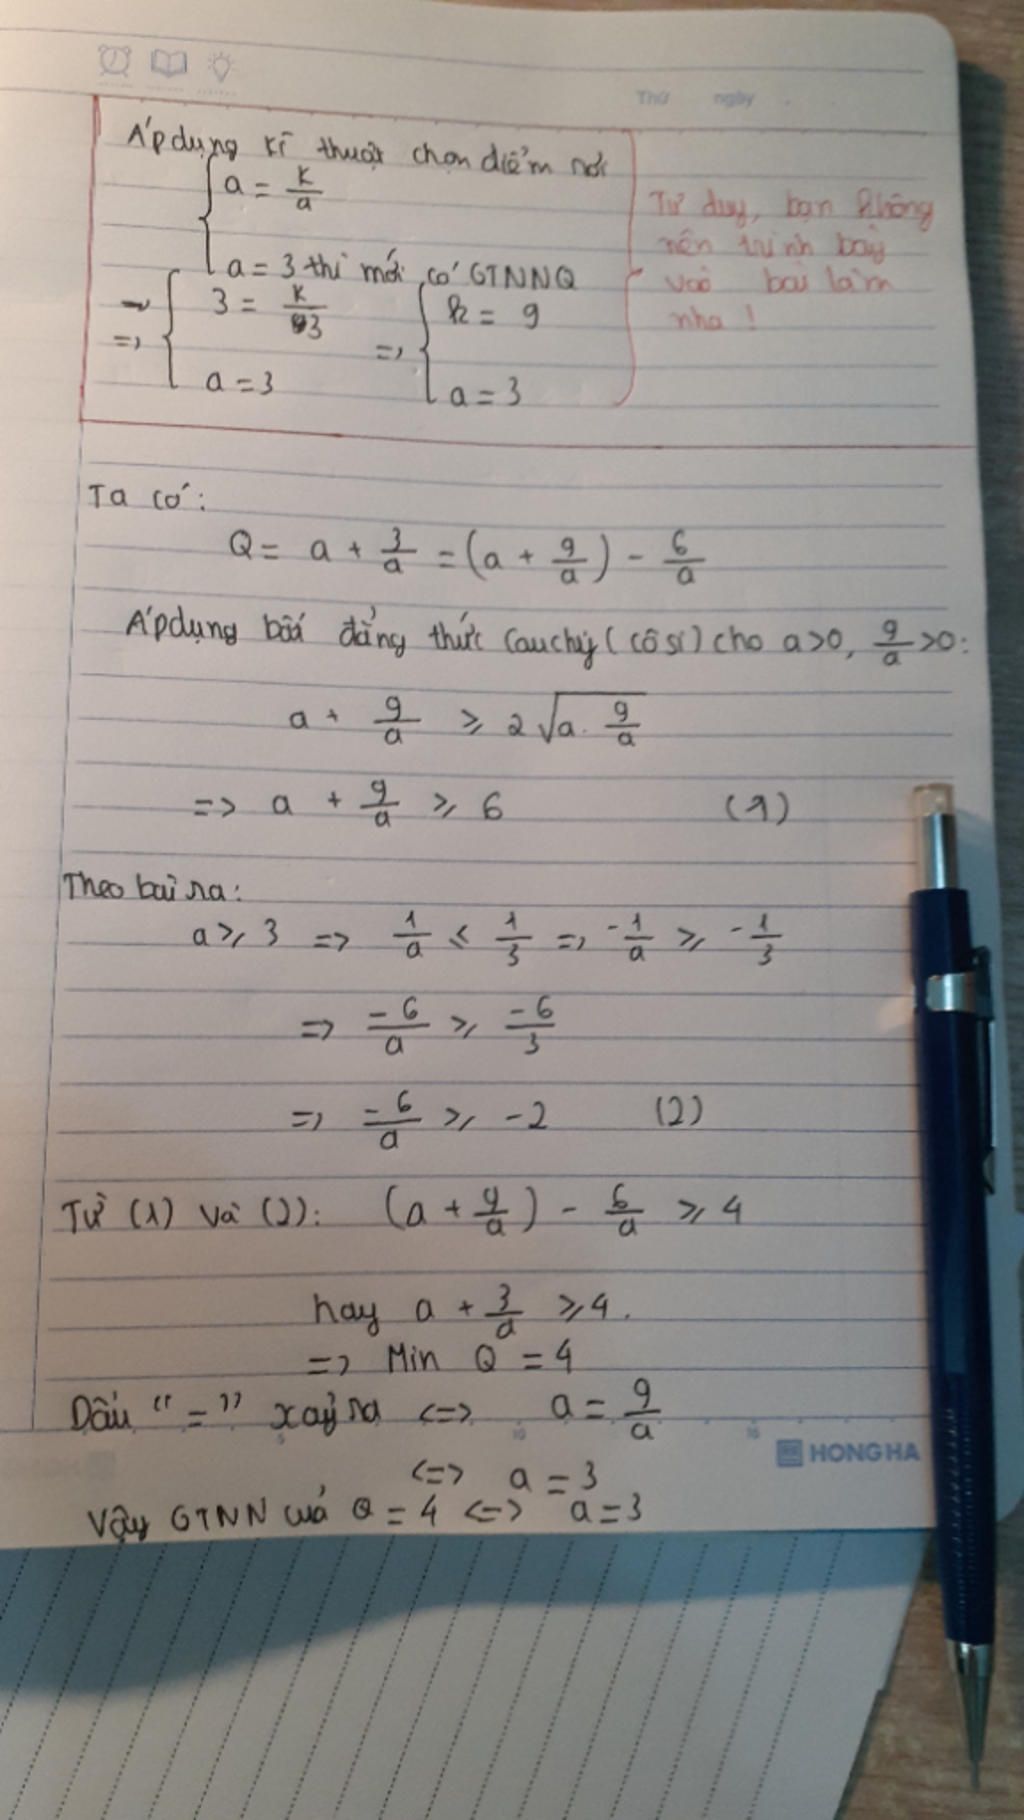 Thứ ngày
Áp dụng kĩ thuật chọn điểm rơi
a = k/a
a = 3 thì mới có GTNNQ
=> 3 = k/3 => k = 9
a = 3 a = 3
Tư duy, bạn không
nên trình bày
vào bài làm
nha!
Ta có:
Q = a + 3/a = (a + 9/a) - 6/a
Áp dụng bất đẳng thức Cauchy (côsi) cho a>0, 9/a >0:
a + 9/a ⩾ 2√(a. 9/a)
=> a + 9/a ⩾ 6 (1)
Theo bài ra:
a ⩾ 3 => 1/a ⩽ 1/3 => -1/a ⩾ -1/3
=> -6/a ⩾ -6/3
=> -6/a ⩾ -2 (2)
Từ (1) và (2): (a + 9/a) - 6/a ⩾ 4
hay a + 3/a ⩾ 4.
=> Min Q = 4
Dấu "=" xảy ra <=> a = 9/a
HONG HA
<=> a = 3
Vậy GTNN của Q = 4 <=> a = 3